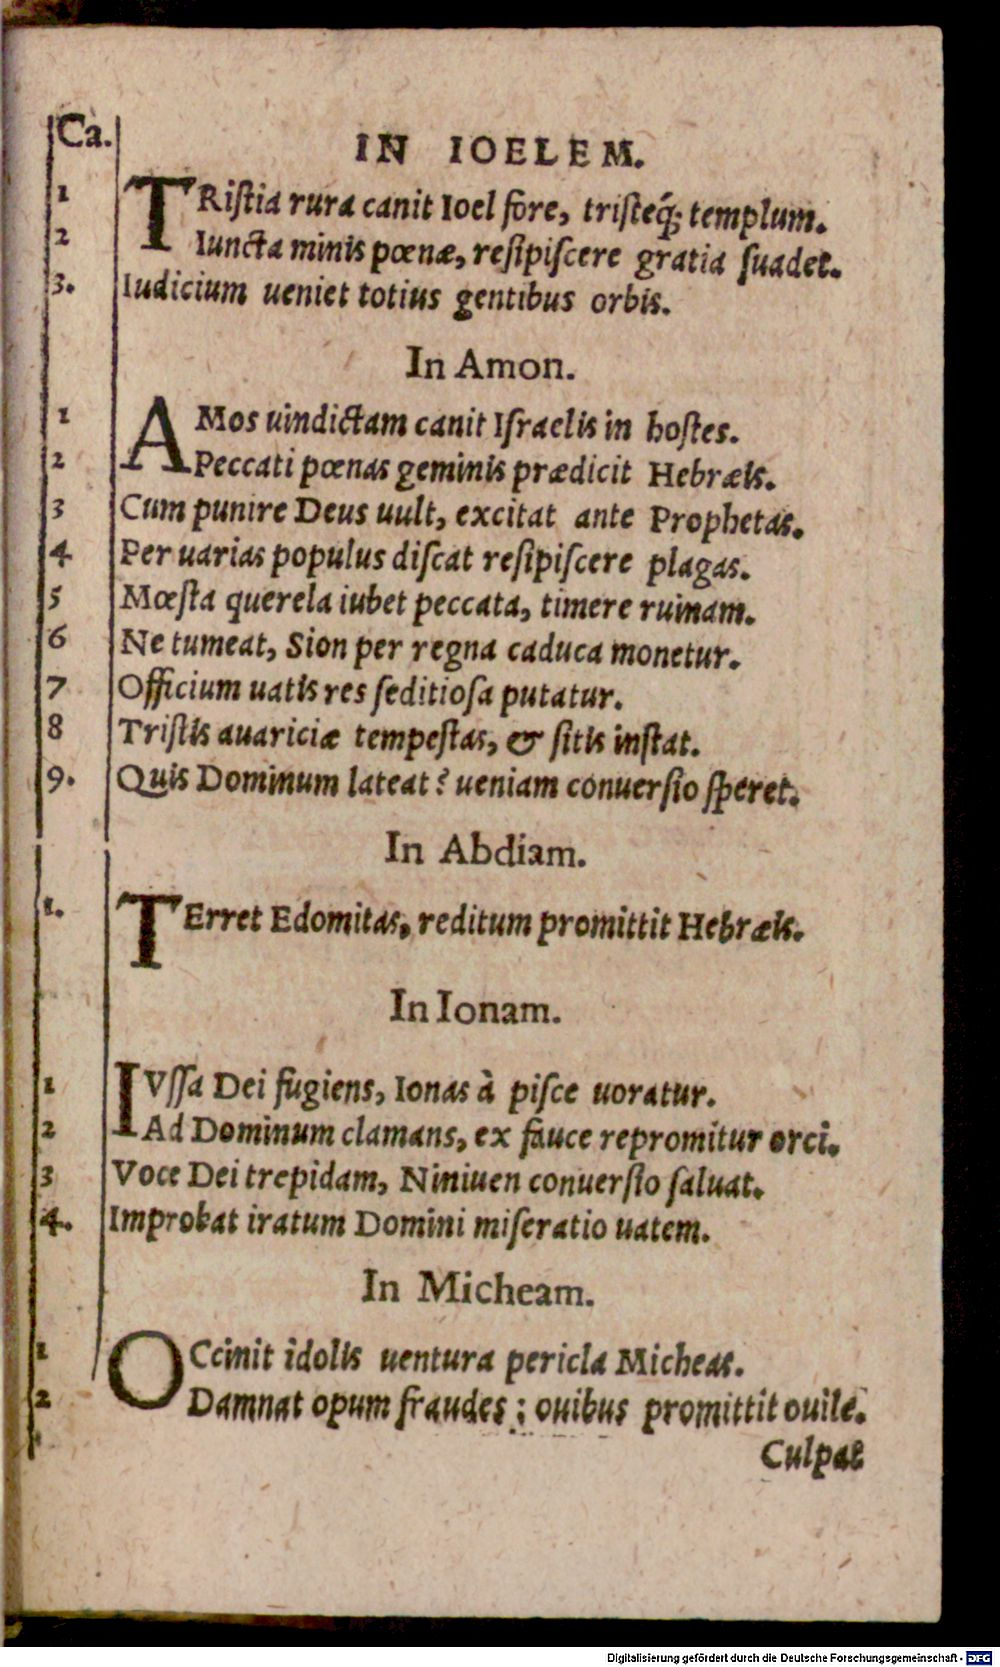 Ca.
IN IOELEM.
1 TRiſtia rura canit Ioel fore, triſteq́; templum.
2 Iuncta minis pœnæ, reſipiſcere gratia ſuadet.
3. Iudicium ueniet totius gentibus orbis.
In Amon.
1 AMos uindictam canit Iſraelis in hoſtes.
2 Peccati pœnas geminis prædicit Hebræis.
3 Cum punire Deus uult, excitat ante Prophetas.
4 Per uarias populus diſcat reſipiſcere plagas.
5 Mœſta querela iubet peccata, timere ruinam.
6 Ne tumeat, Sion per regna caduca monetur.
7 Officium uatis res ſeditioſa putatur.
8 Triſtis auariciæ tempeſtas, & ſitis inſtat.
9. Quis Dominum lateat? ueniam conuerſio ſperet.
In Abdiam.
1. TErret Edomitas, reditum promittit Hebræis.
In Ionam.
1 IVſſa Dei fugiens, Ionas à piſce uoratur.
2 Ad Dominum clamans, ex fauce repromitur orci.
3 Voce Dei trepidam, Niniuen conuerſio ſaluat.
4. Improbat iratum Domini miſeratio uatem.
In Micheam.
1 OCcinit idolis uentura pericla Micheas.
2 Damnat opum fraudes; ouibus promittit ouile.
Culpat
Digitalisierung gefördert durch die Deutsche Forschungsgemeinschaft - DFG